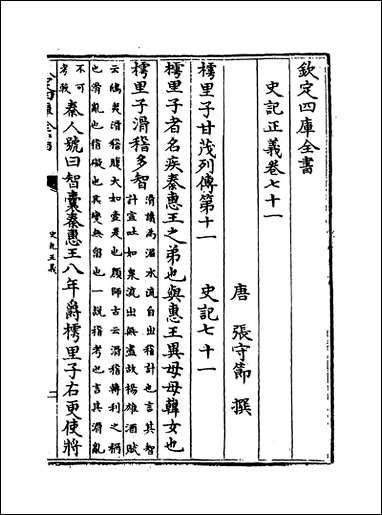 欽定四庫全書
史記正義卷七十一
唐 張守節 撰
樗里子甘茂列傳第十一 史記七十一
樗里子者名疾秦惠王之弟也與惠王異母母韓女也
樗里子滑稽多智
滑讀為淈水流自出稽計也言其智
計宣吐如泉流出無盡故楊雄酒賦
云鴟夷滑稽腹大如壺是也顔師古云滑稽轉利之稱
也滑亂也稽礙也其變無留也一説稽考也言其滑亂
不可
考較
秦人號曰智囊秦惠王八年爵樗里子右更使將
史記正義